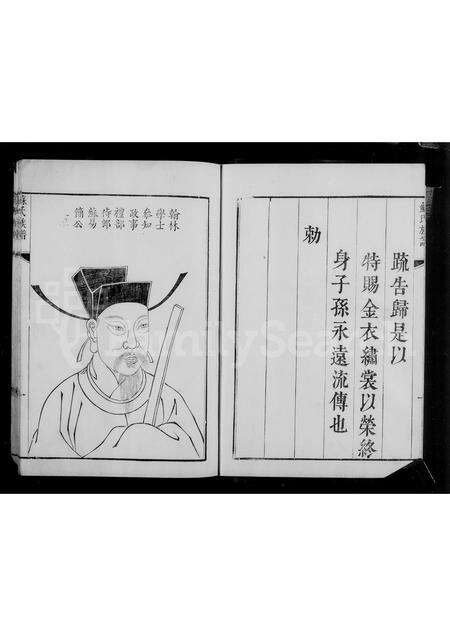 蘇氏族譜
疏告歸是以
特賜金衣繡裳以榮終
身子孫永遠流傳也
勅
翰林
學士
參知
政事
禮部
侍郎
蘇易
簡公
蘇氏族譜
FamilySearch